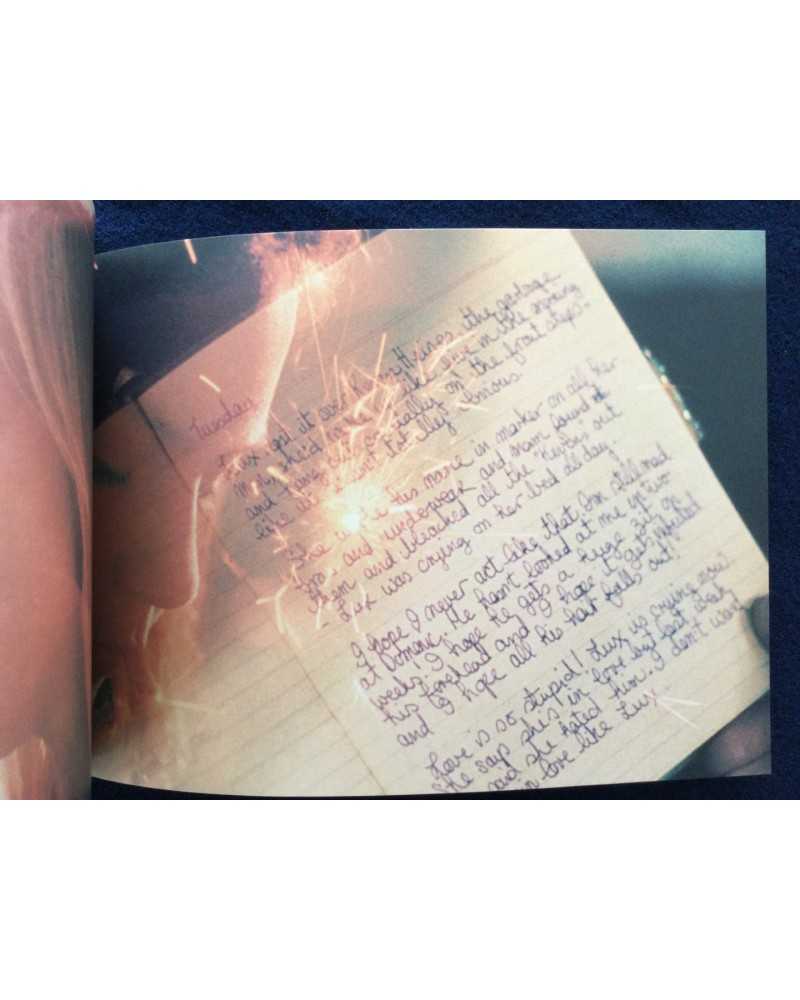 Tuesday
Lux
man, she'd
and
like it wasn't totally obvious.
the garbage
in the morning
on the front steps -
She his name in marker on all her
bras and underwear and mom found
them and bleached all the "Kevins" out
- Lux was crying on her bed all day.
I hope I never act like that. I'm still mad
at Dominic. He hasn't looked at me in two
weeks. I hope he gets a huge zit on
his forehead and I hope it gets infected
and I hope all his hair falls out!
Love is so stupid! Lux is crying now!
She says she's in love but last week
said she hated him. I don't want
in love like Lux